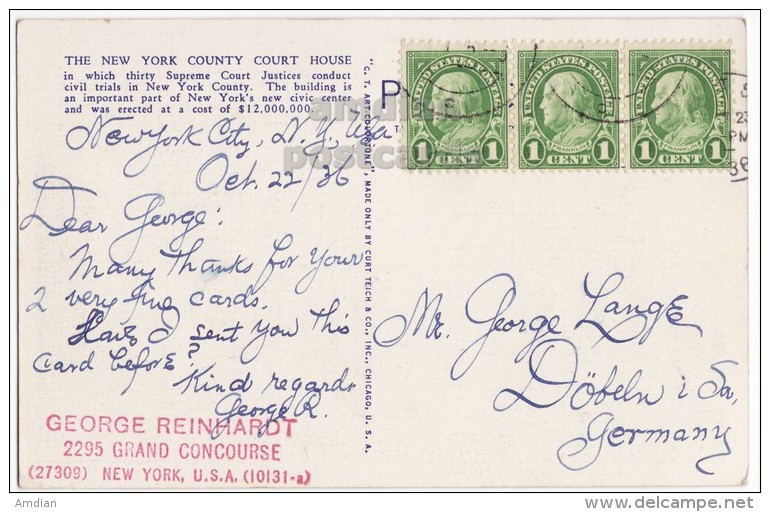 THE NEW YORK COUNTY COURT HOUSE
in which thirty Supreme Court Justices conduct
civil trials in New York County. The building is
an important part of New York's new civic center
and was erected at a cost of $12,000,000.
New York City, N.Y., Usa
Oct. 22/36
Dear George:
Many thanks for your
2 very fine cards.
Have I sent you this
card before?
Kind regards
George R.
GEORGE REINHARDT
2295 GRAND CONCOURSE
(27309) NEW YORK, U.S.A. (10131-a)
"C. T. ART-COLORTONE", MADE ONLY BY CURT TEICH & CO., INC., CHICAGO, U. S. A.
P
UNITED STATES POSTAGE
FRANKLIN
1 CENT 1
UNITED STATES POSTAGE
FRANKLIN
1 CENT 1
UNITED STATES POSTAGE
FRANKLIN
1 CENT 1
23
PM
36
Mr. George Lange
Döbeln i Sa,
Germany
postcards
Amdian
delcampe.net